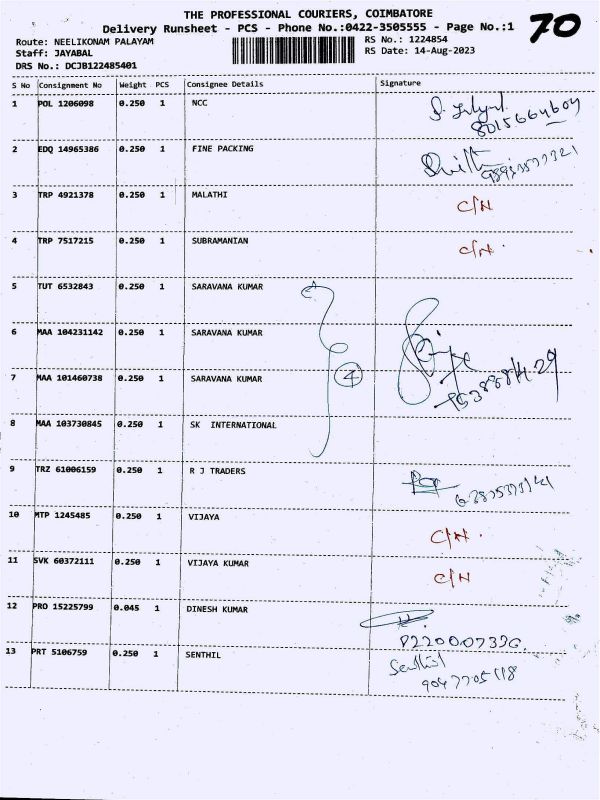 THE PROFESSIONAL COURIERS, COIMBATORE
70
Delivery Runsheet - PCS - Phone No.:0422-3505555 - Page No.:1
Route: NEELIKONAM PALAYAM RS No.: 1224854
Staff: JAYABAL RS Date: 14-Aug-2023
DRS No.: DCJB122485401
S No Consignment No Weight PCS Consignee Details Signature
1 POL 1206098 0.250 1 NCC
8015664604
2 EDQ 14965386 0.250 1 FINE PACKING
3 TRP 4921378 0.250 1 MALATHI C/N
4 TRP 7517215 0.250 1 SUBRAMANIAN C/N
5 TUT 6532843 0.250 1 SARAVANA KUMAR
6 MAA 104231142 0.250 1 SARAVANA KUMAR
7 MAA 101460738 0.250 1 SARAVANA KUMAR 4
8 MAA 103730845 0.250 1 SK INTERNATIONAL
9 TRZ 61006159 0.250 1 R J TRADERS
10 MTP 1245485 0.250 1 VIJAYA C/N
11 SVK 60372111 0.250 1 VIJAYA KUMAR C/N
12 PRO 15225799 0.045 1 DINESH KUMAR
13 PRT 5106759 0.250 1 SENTHIL Senthil
9047705118